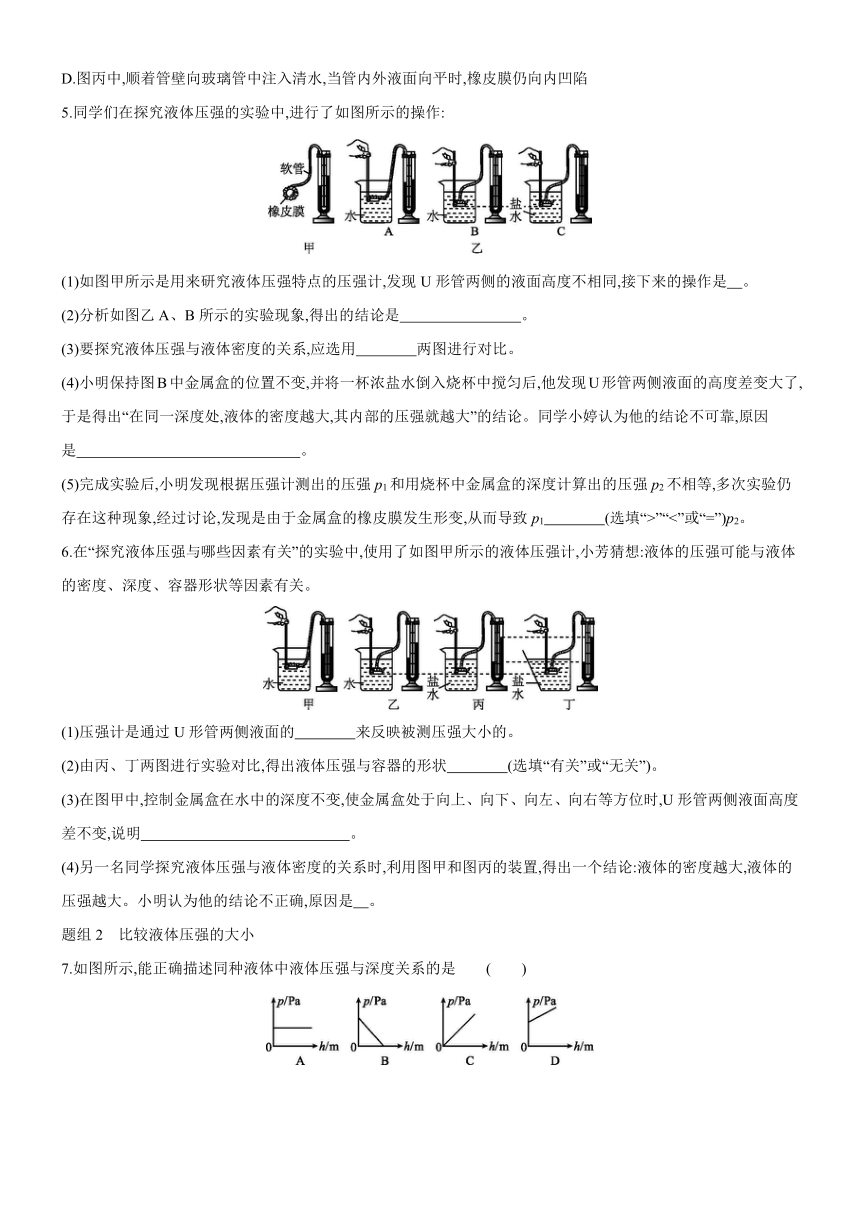 D.图丙中,顺着管壁向玻璃管中注入清水,当管内外液面向平时,橡皮膜仍向内凹陷
5.同学们在探究液体压强的实验中,进行了如图所示的操作:
软管
橡皮膜
水
A
水
B
盐水
C
甲
乙
(1)如图甲所示是用来研究液体压强特点的压强计,发现 U 形管两侧的液面高度不相同,接下来的操作是 。
(2)分析如图乙 A、B 所示的实验现象,得出的结论是 。
(3)要探究液体压强与液体密度的关系,应选用 两图进行对比。
(4)小明保持图B中金属盒的位置不变,并将一杯浓盐水倒入烧杯中搅匀后,他发现U形管两侧液面的高度差变大了,
于是得出“在同一深度处,液体的密度越大,其内部的压强就越大”的结论。同学小婷认为他的结论不可靠,原因
是 。
(5)完成实验后,小明发现根据压强计测出的压强 p1 和用烧杯中金属盒的深度计算出的压强 p2 不相等,多次实验仍
存在这种现象,经过讨论,发现是由于金属盒的橡皮膜发生形变,从而导致 p1 (选填“>”“<”或“=”)p2。
6.在“探究液体压强与哪些因素有关”的实验中,使用了如图甲所示的液体压强计,小芳猜想:液体的压强可能与液体
的密度、深度、容器形状等因素有关。
水
甲
水
乙
盐水
丙
盐水
丁
(1)压强计是通过 U 形管两侧液面的 来反映被测压强大小的。
(2)由丙、丁两图进行实验对比,得出液体压强与容器的形状 (选填“有关”或“无关”)。
(3)在图甲中,控制金属盒在水中的深度不变,使金属盒处于向上、向下、向左、向右等方位时,U 形管两侧液面高度
差不变,说明 。
(4)另一名同学探究液体压强与液体密度的关系时,利用图甲和图丙的装置,得出一个结论:液体的密度越大,液体的
压强越大。小明认为他的结论不正确,原因是 。
题组 2 比较液体压强的大小
7.如图所示,能正确描述同种液体中液体压强与深度关系的是 ( )
p/Pa
0
h/m
A
p/Pa
0
h/m
B
p/Pa
0
h/m
C
p/Pa
0
h/m
D